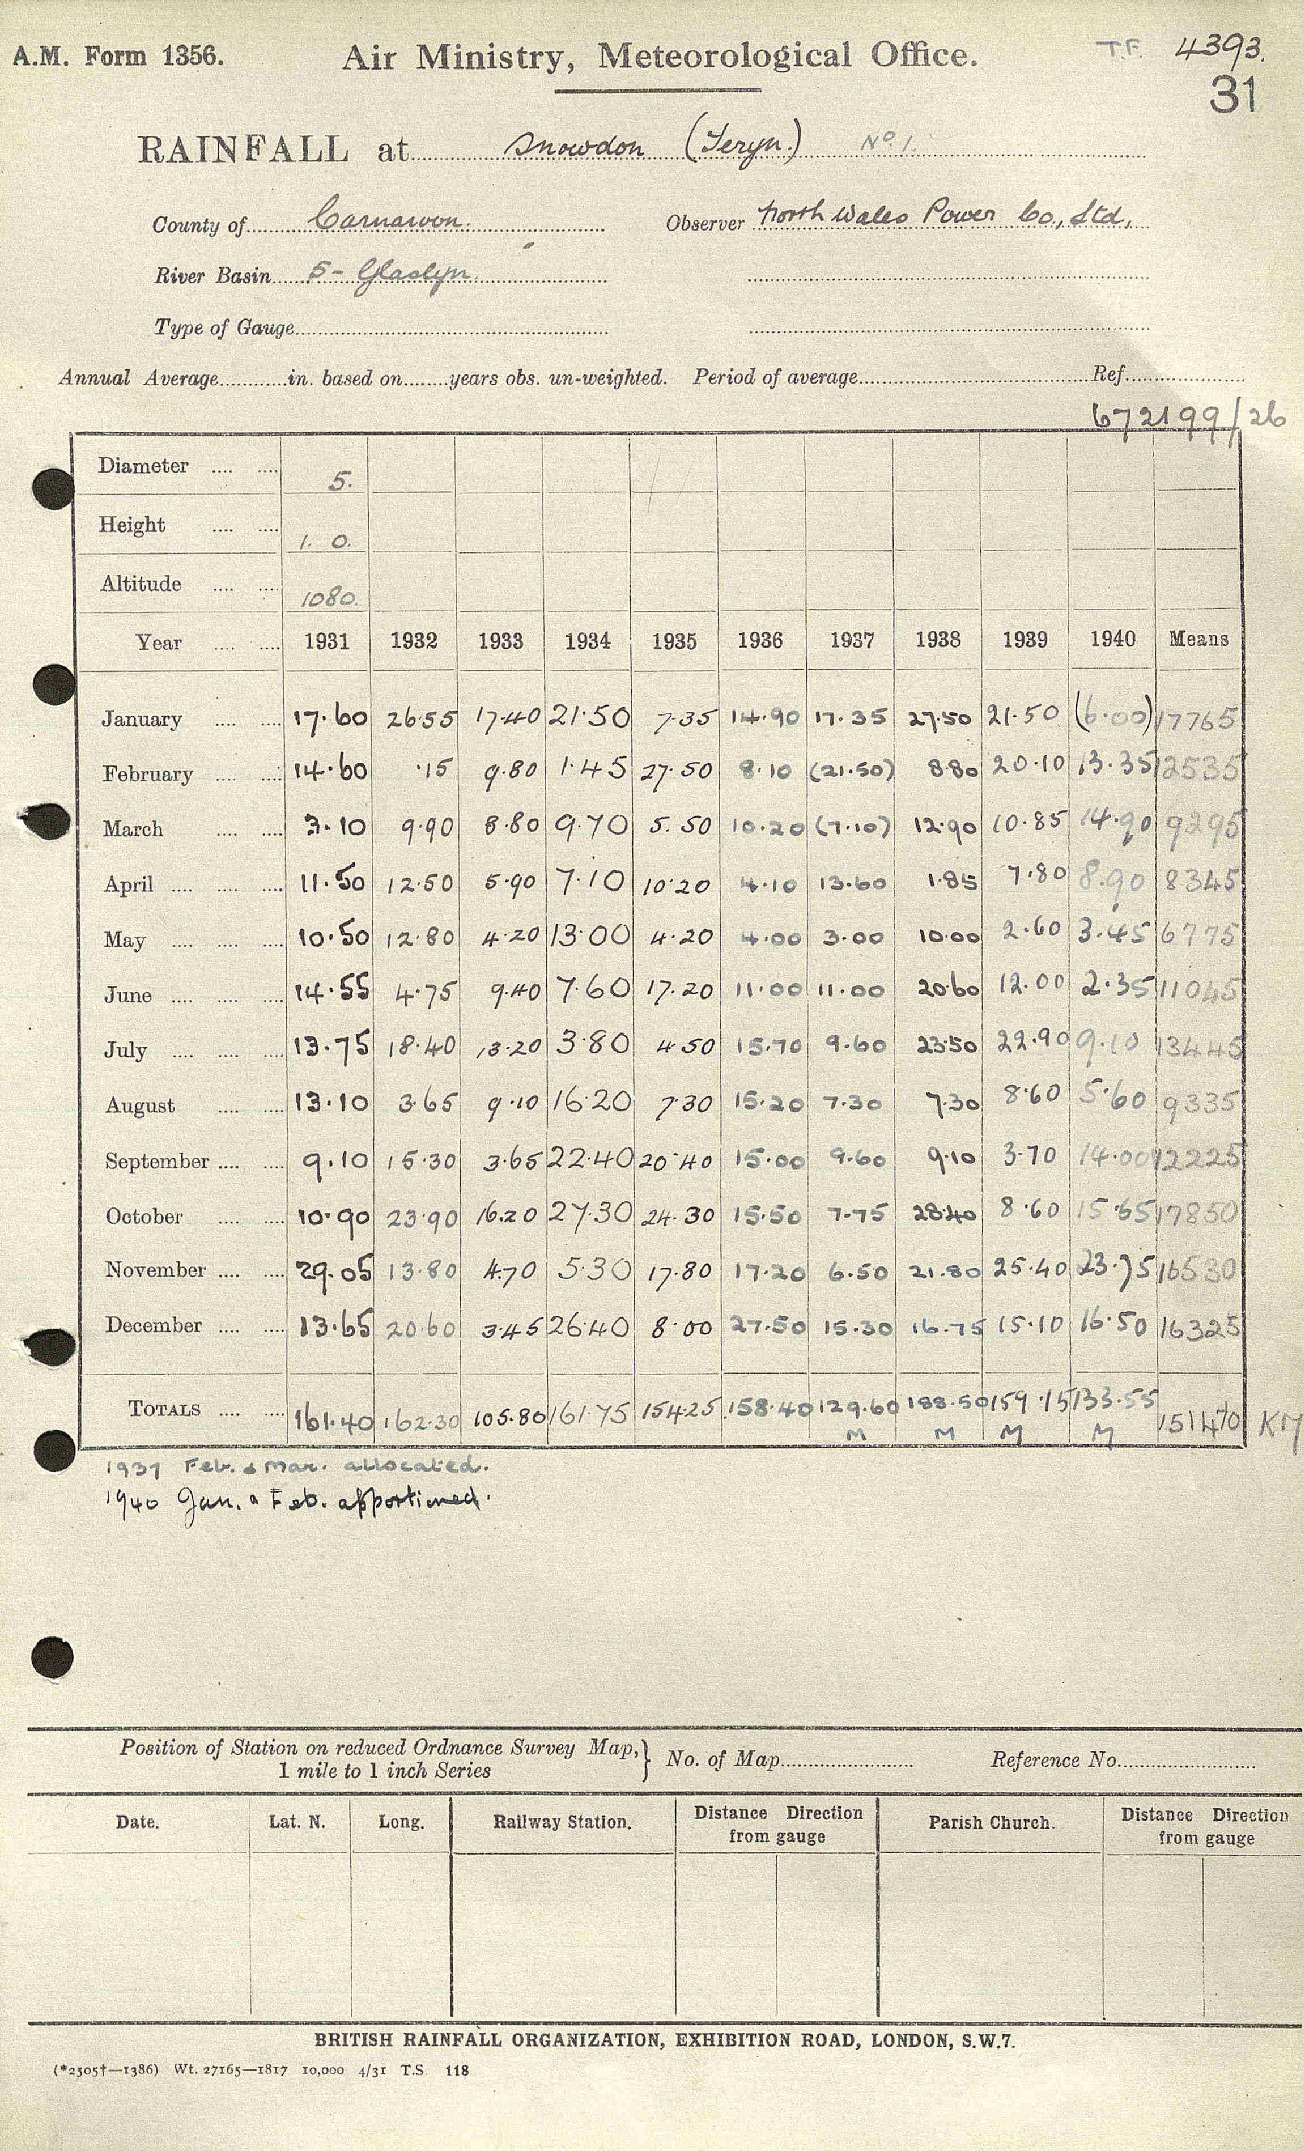 A.M. Form 1356. Air Ministry, Meteorological Office. T.F. 4393.
31
RAINFALL at Snowdon (Teryn.) No. 1.
County of Carnarvon. Observer North Wales Power Co., Ltd,
River Basin 5 - Glaslyn.
Type of Gauge
Annual Average in. based on years obs. un-weighted. Period of average Ref.
672199/26
Diameter 5.
Height 1. 0.
Altitude 1080.
Year 1931 1932 1933 1934 1935 1936 1937 1938 1939 1940 Means
January 17.60 26.55 17.40 21.50 7.35 14.90 17.35 27.50 21.50 (6.00) 17765
February 14.60 .15 9.80 1.45 27.50 8.10 (21.50) 8.80 20.10 13.35 12535
March 3.10 9.90 8.80 9.70 5.50 10.20 (7.10) 12.90 10.85 14.90 9295
April 11.50 12.50 5.90 7.10 10.20 4.10 13.60 1.85 7.80 8.90 8345
May 10.50 12.80 4.20 13.00 4.20 4.00 3.00 10.00 2.60 3.45 6775
June 14.55 4.75 9.40 7.60 17.20 11.00 11.00 20.60 12.00 2.35 11045
July 13.75 18.40 13.20 3.80 4.50 15.70 9.60 23.50 22.90 9.10 13445
August 13.10 3.65 9.10 16.20 7.30 15.20 7.30 7.30 8.60 5.60 9335
September 9.10 15.30 3.65 22.40 20.40 15.00 9.60 9.10 3.70 14.00 12225
October 10.90 23.90 16.20 27.30 24.30 15.50 7.75 28.40 8.60 15.65 17850
November 29.05 13.80 4.70 5.30 17.80 17.20 6.50 21.80 25.40 23.75 16530
December 13.65 20.60 3.45 26.40 8.00 27.50 15.30 16.75 15.10 16.50 16325
TOTALS 161.40 162.30 105.80 161.75 154.25 158.40 129.60 188.50 159.15 133.55 151470 KM
M M M M
1937 Feb. & Mar. allocated.
1940 Jan. & Feb. apportioned.
Position of Station on reduced Ordnance Survey Map, } No. of Map Reference No.
1 mile to 1 inch Series
Date. Lat. N. Long. Railway Station. Distance Direction from gauge Parish Church. Distance Direction from gauge
BRITISH RAINFALL ORGANIZATION, EXHIBITION ROAD, LONDON, S.W.7.
(*2505†—1386) Wt. 27165—1817 10,000 4/31 T.S. 118